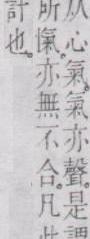 从心氣。氣亦聲。是謂
所愾。亦無不合。凡此
計也。